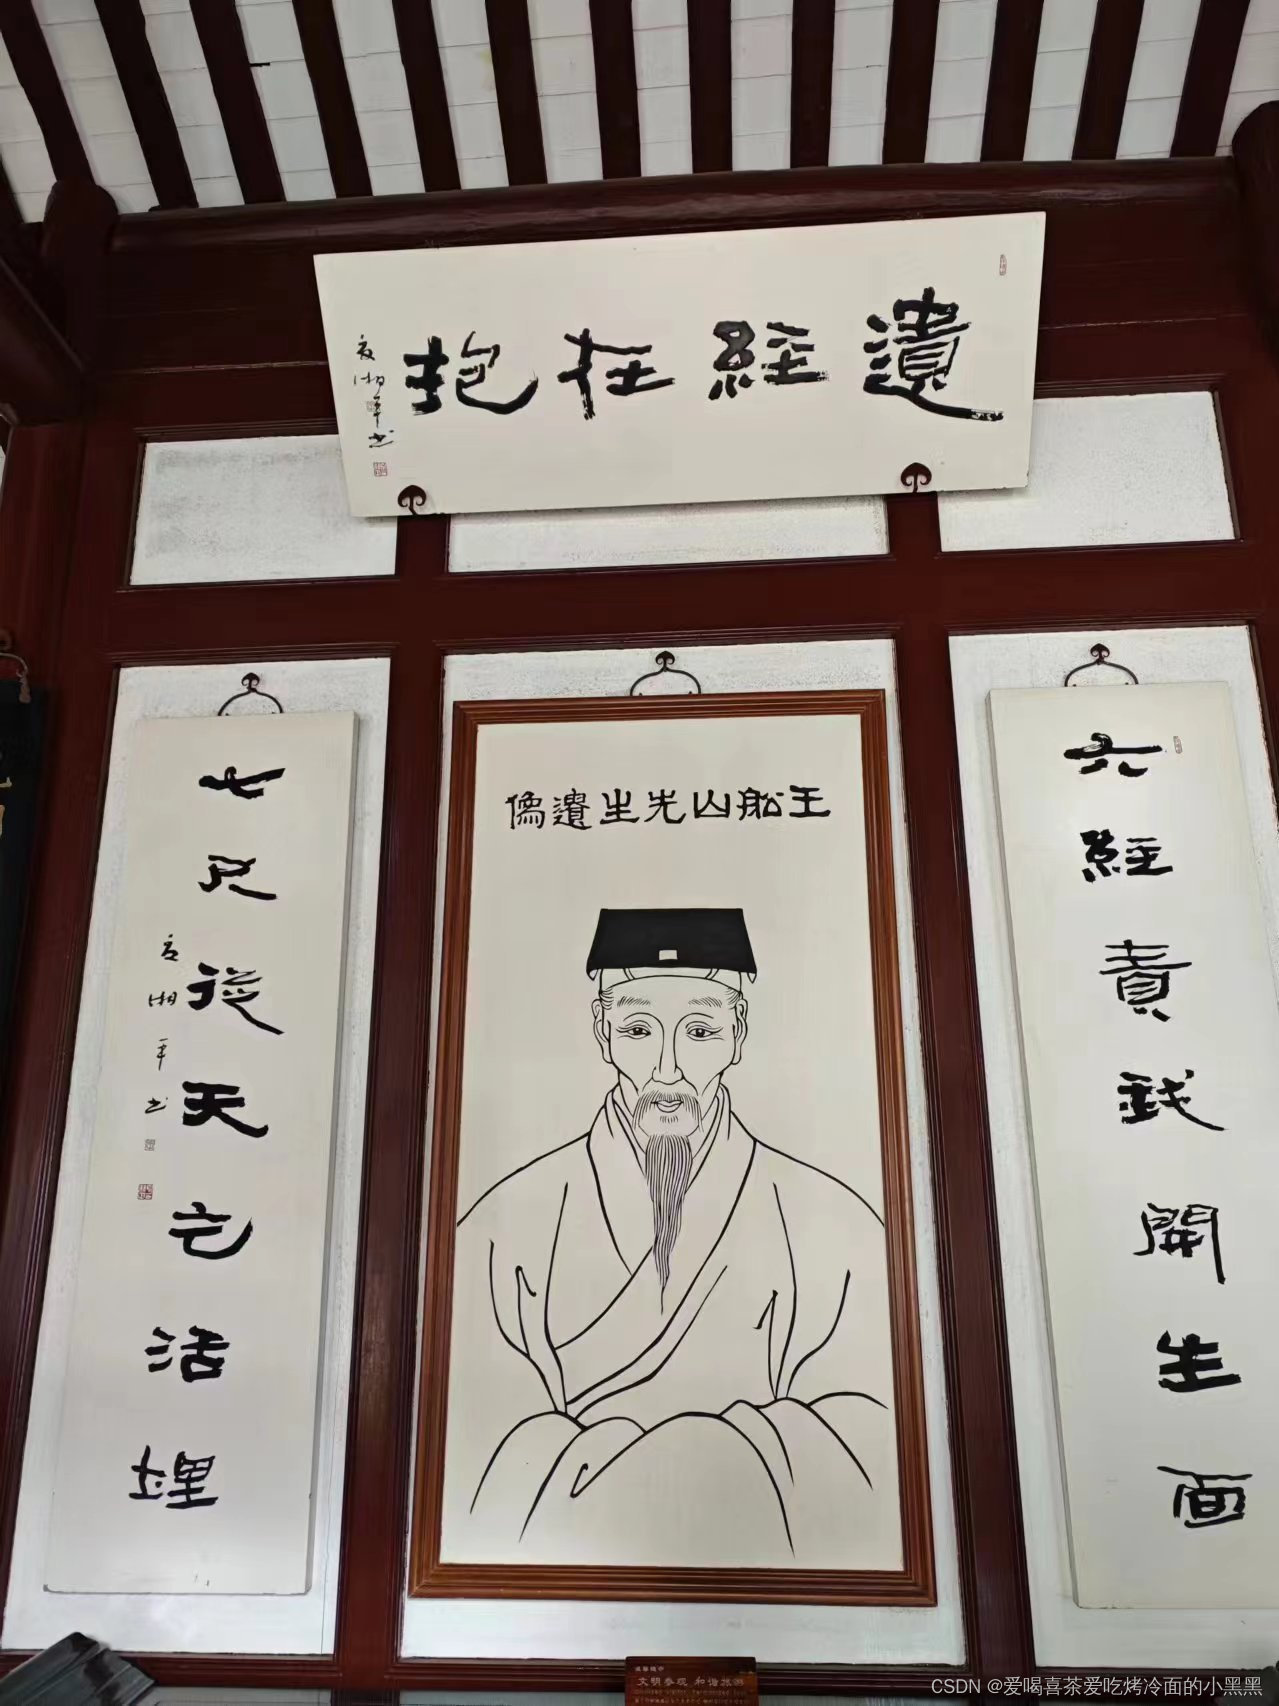 遺經在抱
王船山先生遺像
六經責我開生面
七尺從天乞活埋
湘平书
文明参观 和谐旅游
CSDN @爱喝喜茶爱吃烤冷面的小黑黑